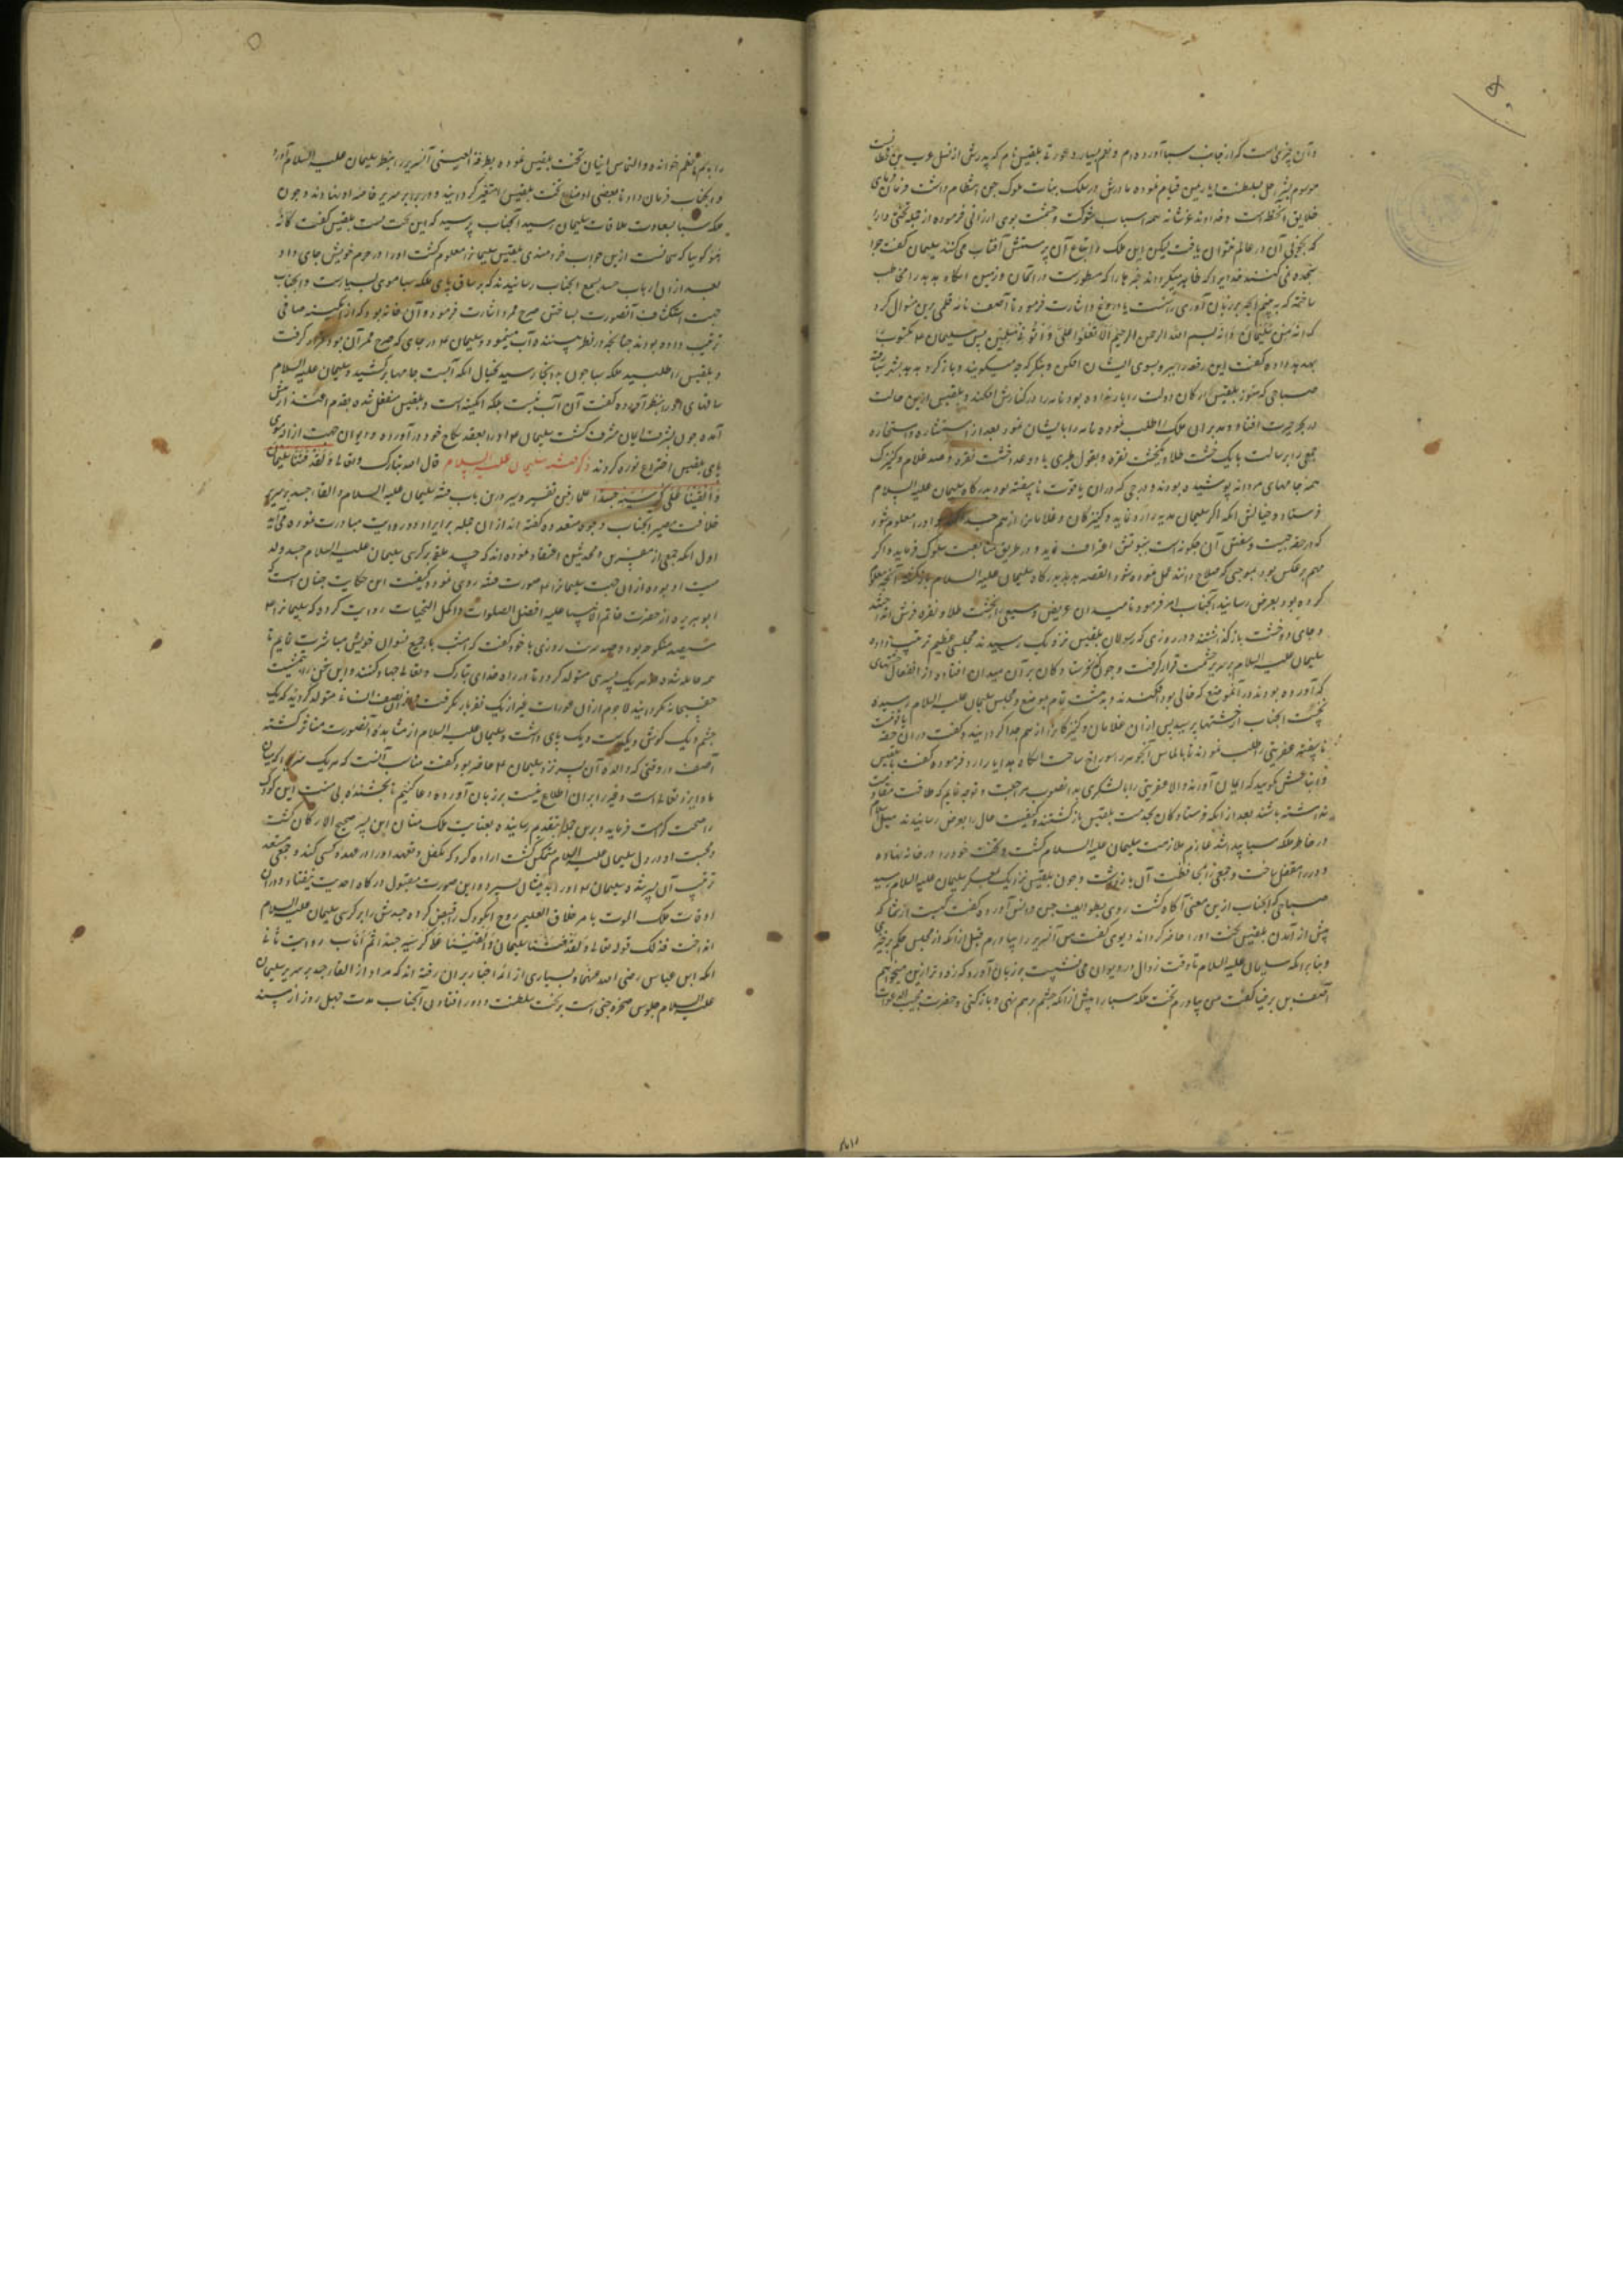 و آن چیزی است که از جانب سبا آورده‌ام و نعم بسیار و عورتی بلقیس نام که پدرش از نسل عرب بن قحطانست
موسوم بشراحیل بسلطنت آن زمین قیام نموده مادرش در سلک بنات ملوک جن انتظام داشت فرمان فرمای
خلایق آن خطه است و خداوند عز شانه همه اسباب شوکت و حشمت بوی ارزانی فرموده از جمله تختی دارد
که بخوبی آن در عالم نتوان یافت لیکن این ملکه و اتباع آن پرستش آفتاب می‌کنند سلیمان گفت چرا
سجده نمی‌کنند خدایرا که ظاهر میگرداند خبر هاراکه مسطورست در آسمان و زمین انگاه هدهد را مخاطب
ساخته که ببینم آنچه بر زبان آوری راست یا دروغ و اشارت فرمود تا آصف نامه قلمی برین منوال کرد
که انه من سلیمان و انه بسم الله الرحمن الرحیم الا تعلوا علی و أتونی مسلمین پس سلیمان ع مکتوب را
بهدهد داده گفت این رقعه را ببر و بسوی ایشان افکن و بنگر که چه میگویند و باز گرد هدهد بشهر سبا رفته
صباحی که هنوز بلقیس ارکان دولت را بار نداده بود نامه را در کنارش افکند و بلقیس ازین حالت
در بحر حیرت افتاد و مدبران ملک را طلب نموده نامه را بایشان نمود بعد از استشاره و استخاره
جمعی را برسالت با یک خشت طلا و یکخشت نقره و بقول طبری با دو عدد خشت نقره و صد غلام و کنیزک
همه جامهای مردانه پوشیده بودند و درجی که دران یاقوت ناسفته بود بدرگاه سلیمان علیه السلام
فرستاد و خیالش آنکه اگر سلیمان هدیه را رد نماید و کنیزکان و غلامان از هم جدا کند و او را معلوم شود
که در حقه چیست و سفتن آن چگونه است بنبوتش اعتراف نماید و در طریق متابعت سلوک فرماید و اگر
مهم بر عکس بود بموجبی که صلاح دانند عمل نموده شود القصه هدهد بدرگاه سلیمان علیه السلام بازگشته آنچه معلوم
کرده بود بعرض رسانید آنجناب امر فرمود تا میدان عریض وسیعی را بخشت طلا و نقره فرش انداختند
و جای دو خشت باز گذاشتند و در روزی که رسولان بلقیس نزدیک رسیدند مجلسی عظیم ترتیب داده
سلیمان علیه السلام بر سریر حشمت قرار گرفت و چون فرستادگان بر آن میدان افتاد از انفعال خشتهای
که آورده بودند در آنموضع که خالی بود افکندند و بدهشت تمام بموضع مجلس سلیمان علیه السلام رسیده
نخست آنجناب از خشتها پرسید پس ازان غلامان و کنیزکان را از هم جدا گردانید و گفت دران حقه یاقوت
ناسفته عفریتی را طلب نمودند تا بالماس آنجوهر را سوراخ ساخت انگاه هدایا را رد فرموده گفت بلقیس
و اتباعش گویید که ایمان آورند والا عفریتی را بالشکری بدانصوب مراجعت و توجه نمایم که طاقت مقاومت
نداشته باشند بعد از آنکه فرستادگان بخدمت بلقیس بازگشتند و کیفیت حال را بعرض رسانیدند میل اسلام
در خاطر ملکه سبا پیدا شد عازم ملازمت سلیمان علیه السلام گشت و تخت خود را در خانه نهاده
و در را مقفل ساخت و جمعی را بمحافظت آن بازداشت و چون بلقیس نزدیک معسکر سلیمان علیه السلام رسید
صباحی که آنجناب ازین معنی آگاه گشت روی بطوایف جن و انس آورده گفت کیست از شما که
پیش از آمدن بلقیس تخت او را حاضر گرداند دیوی گفت من آن سریر را بیاورم قبل از آنکه از مجلس حکم برخیزی
و بنابر آنکه سلیمان علیه السلام تا وقت زوال در دیوان می‌نشست بر زبان آورد که زودتر ازین میخواهم
آصف بن برخیا گفت من بیاورم تخت ملکه سبا را پیش از آنکه چشم بر هم نهی و باز کنی و حضرت مجیب الدعوات
را باسم اعظم خوانده و التماس اتیان تخت بلقیس نموده بطرفة العینی آن سریر را بنظر سلیمان علیه السلام آورد
و آنجناب فرمان داد تا بعضی اوضاع تخت بلقیس را متغیر گردانید و در برابر سریر خاصه او بنهادند و چون
ملکه سبا بسعادت ملاقات سلیمان رسید آنجناب پرسید که این تخت تست بلقیس گفت کانه
هو گوییا که همانست ازین جواب خردمندی بلقیس سلیمانرا معلوم گشت او را در حرم خویش جای داد
بعد ازان ارباب حسد بسمع آنجناب رسانیدند که بر ساق پای ملکه سبا موی بسیارست و آنجناب
جهت استکشاف آنصورت بساختن صرح ممرد اشارت فرمود و آن خانه بود که از آبگینه صافی
ترتیب داده بودند چنانچه در نظر بیننده آب مینمود و سلیمان ع در جای که صرح ممر آن بود قرار گرفت
و بلقیس را طلبید ملکه سبا چون بدانجا رسید بخیال آنکه آبست جامها برکشید و سلیمان علیه السلام
ساقهای او را بنظر آورده گفت آن آب نیست بلکه آبگینه است و بلقیس منفعل شده بقدم اعتذار پیش
آمده چون بشرف ایمان مشرف گشت سلیمان ع او را بعقد نکاح خود در آورده و دیوان جهت ازاله موی
پای بلقیس اختراع نوره کردند ذکر فتنه سلیمان علیه السلام قال الله تبارک و تعالی و لقد فتنا سلیمان
و القینا علی کرسیه جسدا علمای فن تفسیر و سیر درین باب فتنه سلیمان علیه السلام و القاء جسد بر سریر
خلافت مصیر آنجناب وجوه متعدده گفته‌اند ازان جمله بر ایراد دو روایت مبادرت نموده می‌آید
اول آنکه جمعی از مفسرین و محدثین اعتقاد نموده‌اند که جسد ملقی بر کرسی سلیمان علیه السلام جسد ولد
میت او بوده ازان جهت سلیمانرا ع صورت فتنه روی نمود و کیفیت این حکایت چنان است که
ابو هریره از حضرت خاتم الانبیا علیه افضل الصلوات و اکمل التحیات روایت کرده که سلیمانرا ع
سیصد منکوحه بود و هفتصد سریت روزی با خود گفت که امشب با جمیع نسوان خویش مباشرت نمایم تا
همه حامله شده از هر یک پسری متولد گردد تا در راه خدای تبارک و تعالی جهاد کنند و این سخن را بمشیت
حق سبحانه نگردانید لاجرم ازان عورات غیر از یک نفر بار نگرفت و ازان نصف انسانی متولد گردید که یک
چشم و یک گوش و یکدست و یک پای داشت و سلیمان علیه السلام از مشاهده آنصورت متاثر گشته
آصف در وقتی که والده آن پسر نزد سلیمان ع حاضر بود گفت مناسب آنست که هر یک سری که میان
ما و ایزد تعالی است و غیر را بران اطلاع نیست بر زبان آورده دعا کنیم تا بخشنده بی منت این کودک
را صحت کرامت فرماید و برین جمله بتقدیم رسانیده بعنایت ملک منان این پسر صحیح الارکان گشت
و محبت او در دل سلیمان علیه السلام متمکن گشت اراده کرد که تکفل و تعهد او را در عهده کسی کند و جمعی متعهد
ترتیب آن پسر شده سلیمان ع او را بدیشان سپرد و این صورت مقبول درگاه احدیت نیفتاد و دران
اوقات ملک الموت بامر خلاق العلیم روح آنکودک را قبض کرده جسدش را بر کرسی سلیمان علیه السلام
انداخت فذلک قوله تعالی و لقد فتنا سلیمان و القینا علی کرسیه جسدا ثم اناب روایت ثانی
آنکه ابن عباس رضی الله عنهما و بسیاری از ائمه اخبار بران رفته‌اند که مراد از القاء جسد بر سریر سلیمان
علیه السلام جلوس صخره جنی است بر تخت سلطنت و دور افتادن آنجناب مدت چهل روز از مسند